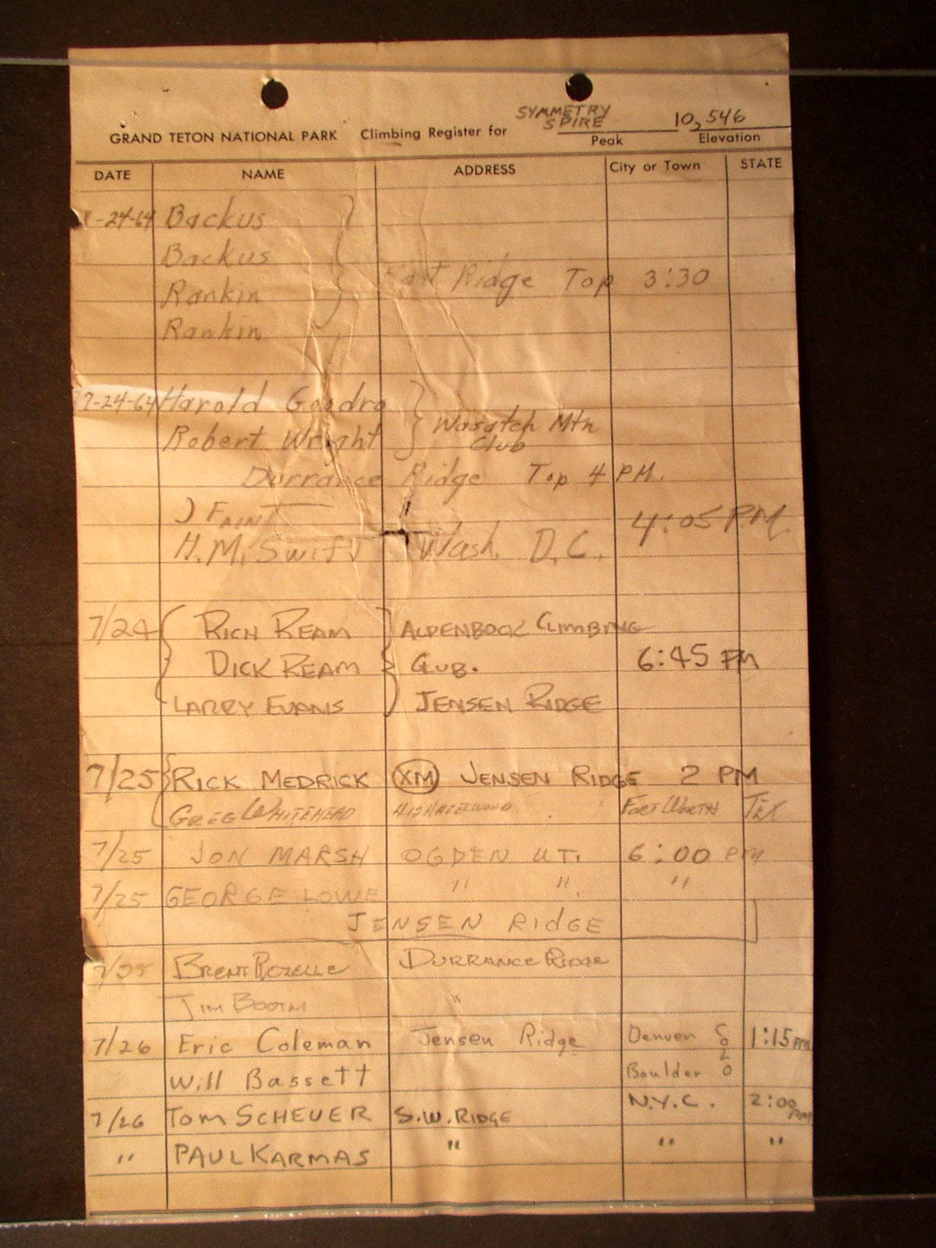 SYMMETRY
SPIRE 10,546
GRAND TETON NATIONAL PARK Climbing Register for Peak Elevation
DATE NAME ADDRESS City or Town STATE
-24-64 Backus
Backus
Ridge Top 3:30
Rankin
Rankin
7-24-64 Harold Goodro
Robert Wright Wasatch Mtn
Club
Durrance Ridge Top 4 PM.
) FAINT "
4:05 PM.
H.M. Swift Wash. D.C.
7/24 RICH REAM ALPENBOCK CLIMBING
DICK REAM 6:45 PM
LARRY EVANS JENSEN RIDGE
7/25 RICK MEDRICK XM JENSEN RIDGE 2 PM
GREG WHITEHEAD FORT WORTH TEX
7/25 JON MARSH OGDEN UT. 6:00 PM
7/25 GEORGE LOWE " " "
JENSEN RIDGE
BRENT ROZELLE DURRANCE RIDGE
JIM "
7/26 Eric Coleman Jensen Ridge Denver COLO 1:15 PM
Will Bassett Boulder
7/26 TOM SCHEUER S.W. RIDGE N.Y.C. 2:00 PM
" PAUL KARMAS " " "